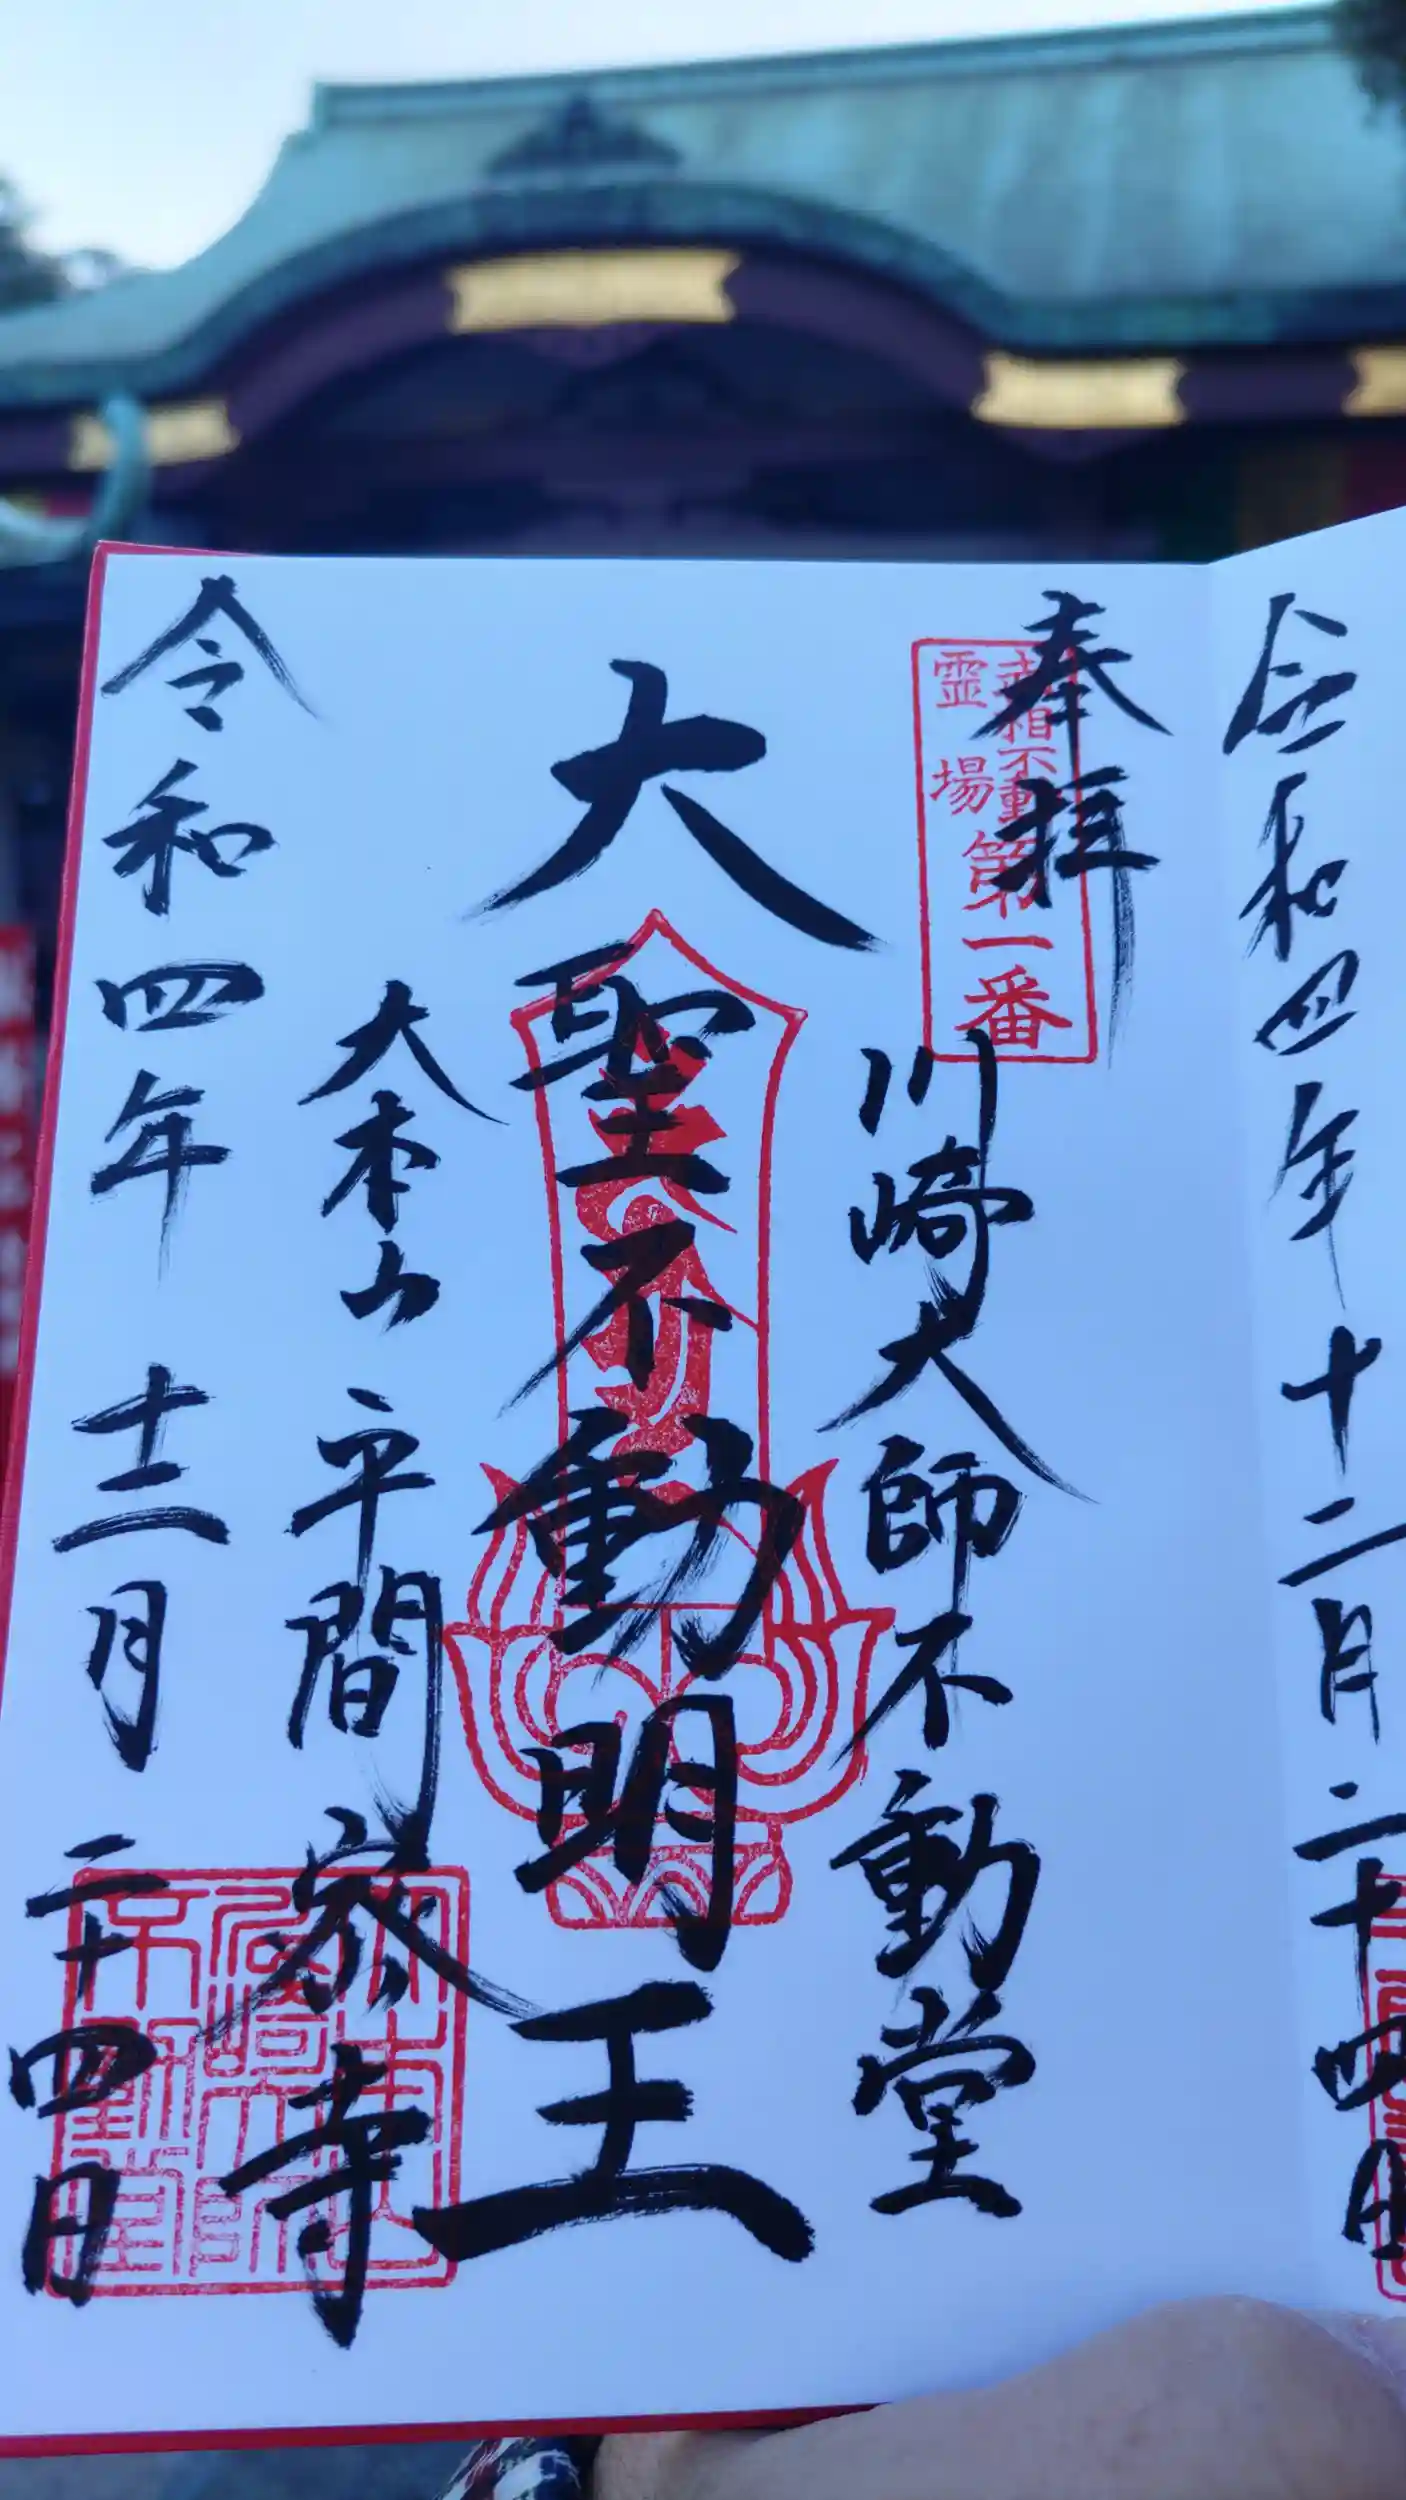 令和四年十二月二十四日
奉拝
武相不動
霊場
第一番
川崎大師不動堂
大聖不動明王
大本山平間寺
令和四年十二月二十四日